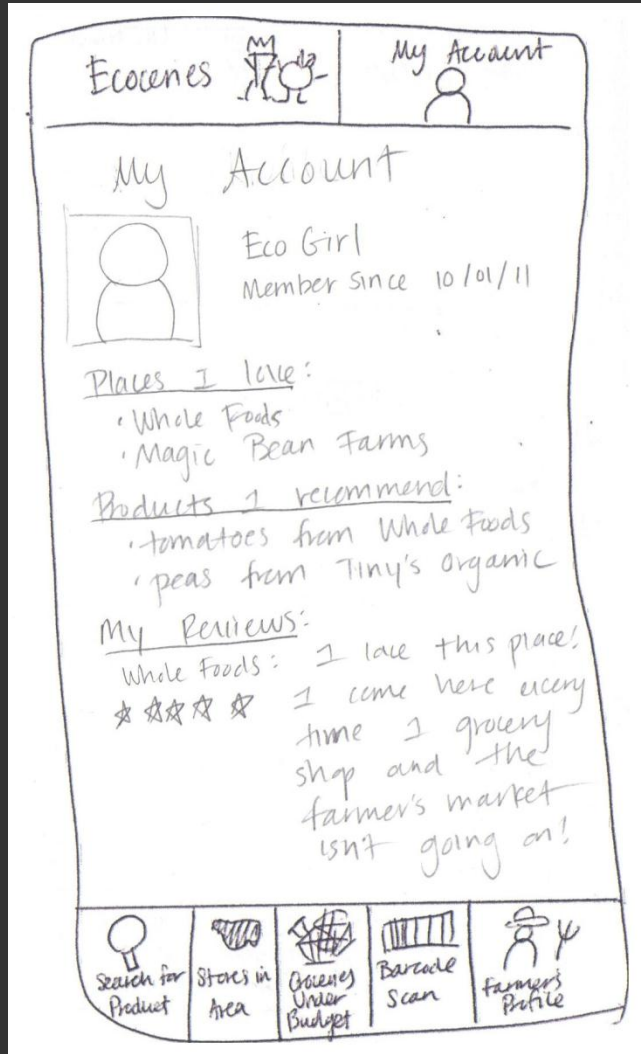 Ecoceries
My Account
My Account
Eco Girl
Member Since 10/01/11
Places I love:
• Whole Foods
• Magic Bean Farms
Products I recommend:
• tomatoes from Whole Foods
• peas from Tiny's Organic
My Reviews:
Whole Foods:
I love this place!
I come here every
time I grocery
shop and the
farmer's market
isn't going on!
Search for
Product
Stores in
Area
Groceries
Under
Budget
Barcode
Scan
Farmer's
Profile